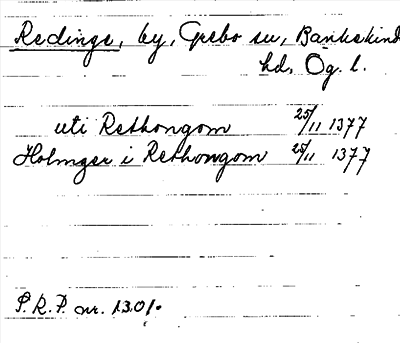 Redinge, by, Grebo sn, Bankekind
hd, Ög. l.
uti Rethongom 25/11 1377
Holmger i Rethongom 25/11 1377
S.R.P. nr. 1301.